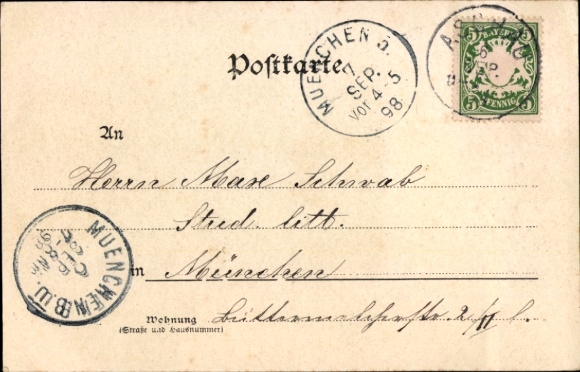 Postkarte
MUENCHEN 5.
7
SEP.
Vor 4-5
98
BAYERN
5 5
5 5
PFENNIG
An
Herrn Max Schwab
Stud. litt.
in München
MUENCHEN B.W.
SEP
98
Wohnung
(Straße und Hausnummer)
2/II l.